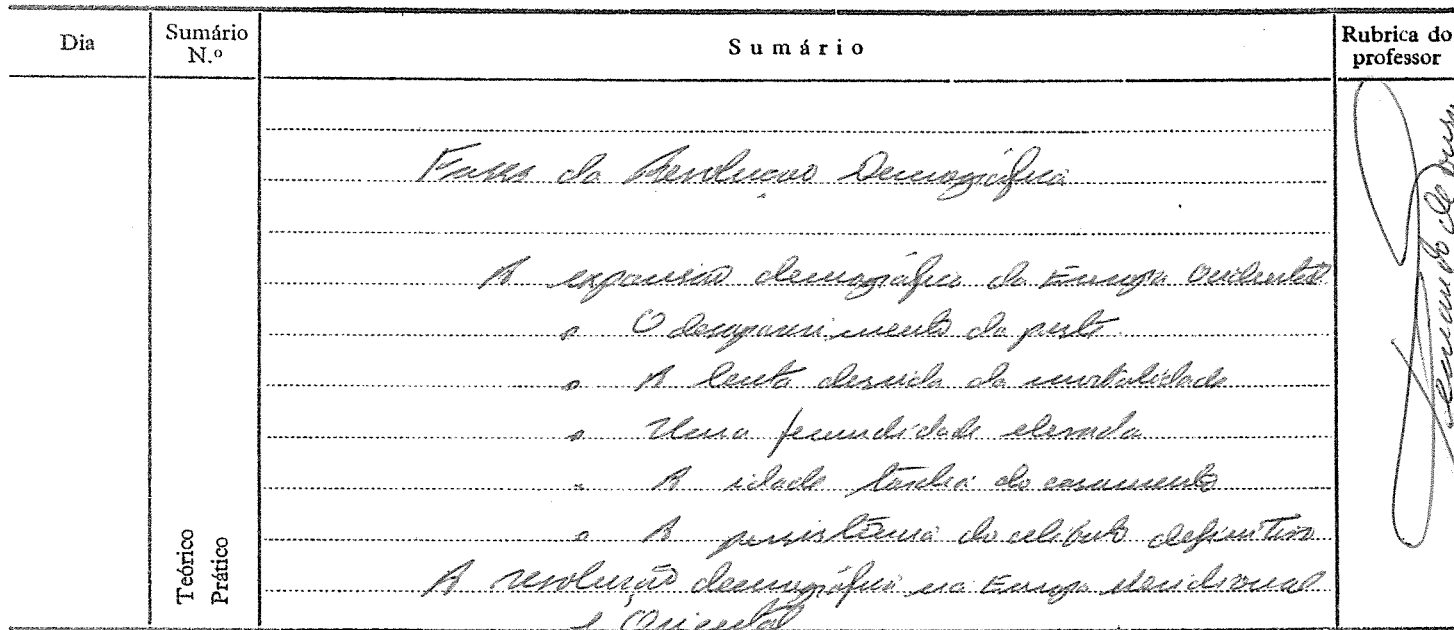 Dia
Sumário
N.º
Sumário
Rubrica do
professor
Fases da Revolução Demográfica
A expansão demográfica da Europa Ocidental
O desaparecimento da peste
A lenta descida da mortalidade
Uma fecundidade elevada
A idade tardia do casamento
A persistência do celibato definitivo
A revolução demográfica na Europa Meridional
e Oriental
Teórico
Prático
Fernando de Sousa